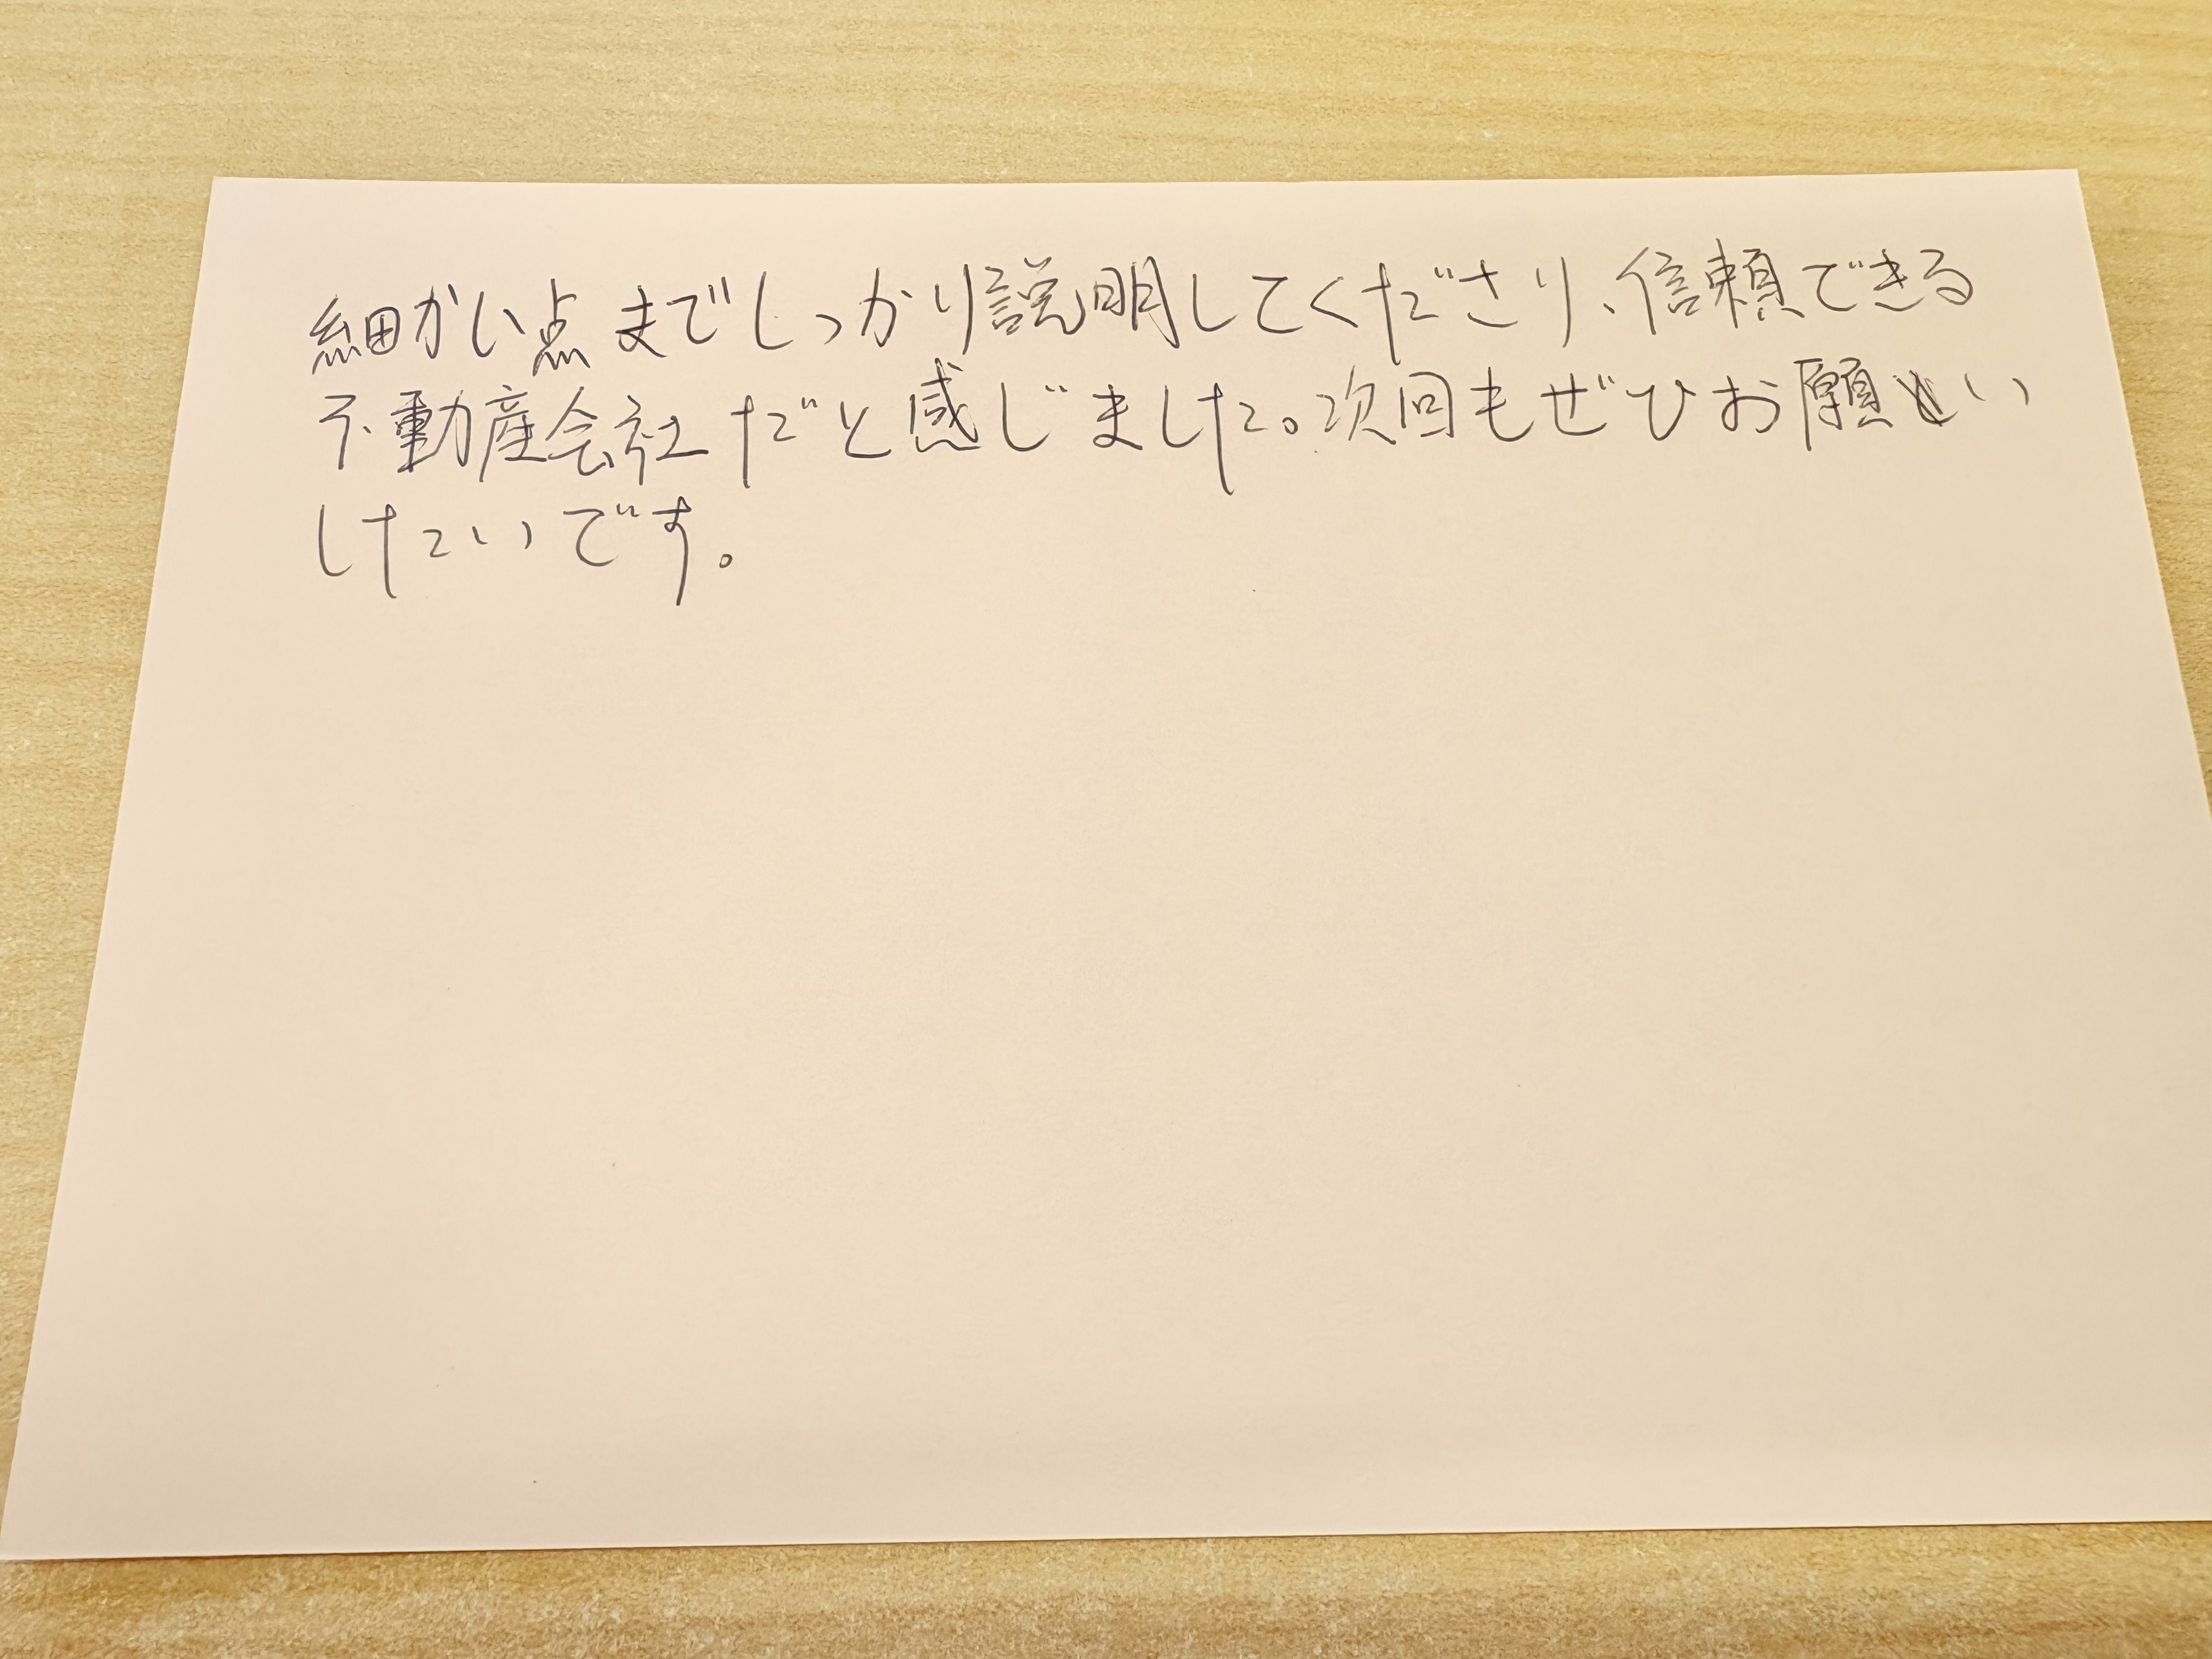 細かい点までしっかり説明してくださり、信頼できる
不動産会社だと感じました。次回もぜひお願い
したいです。